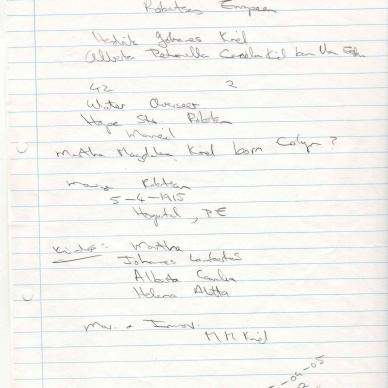 Robertson European
Hendrik Johannes Kriel
Alberta Petronella Carolina Kriel born Van
42 2
Water Overseer
Hope Str Robertson
Married
Martha Magdalena Kriel born Colyn ?
Robertson
5-4-1915
Hospital, PE
Kinders: Martha
Johannes Lambertus
Alberta Carolina
Helena Aletta
Mov. + Immov.
M M Kriel
-04-05